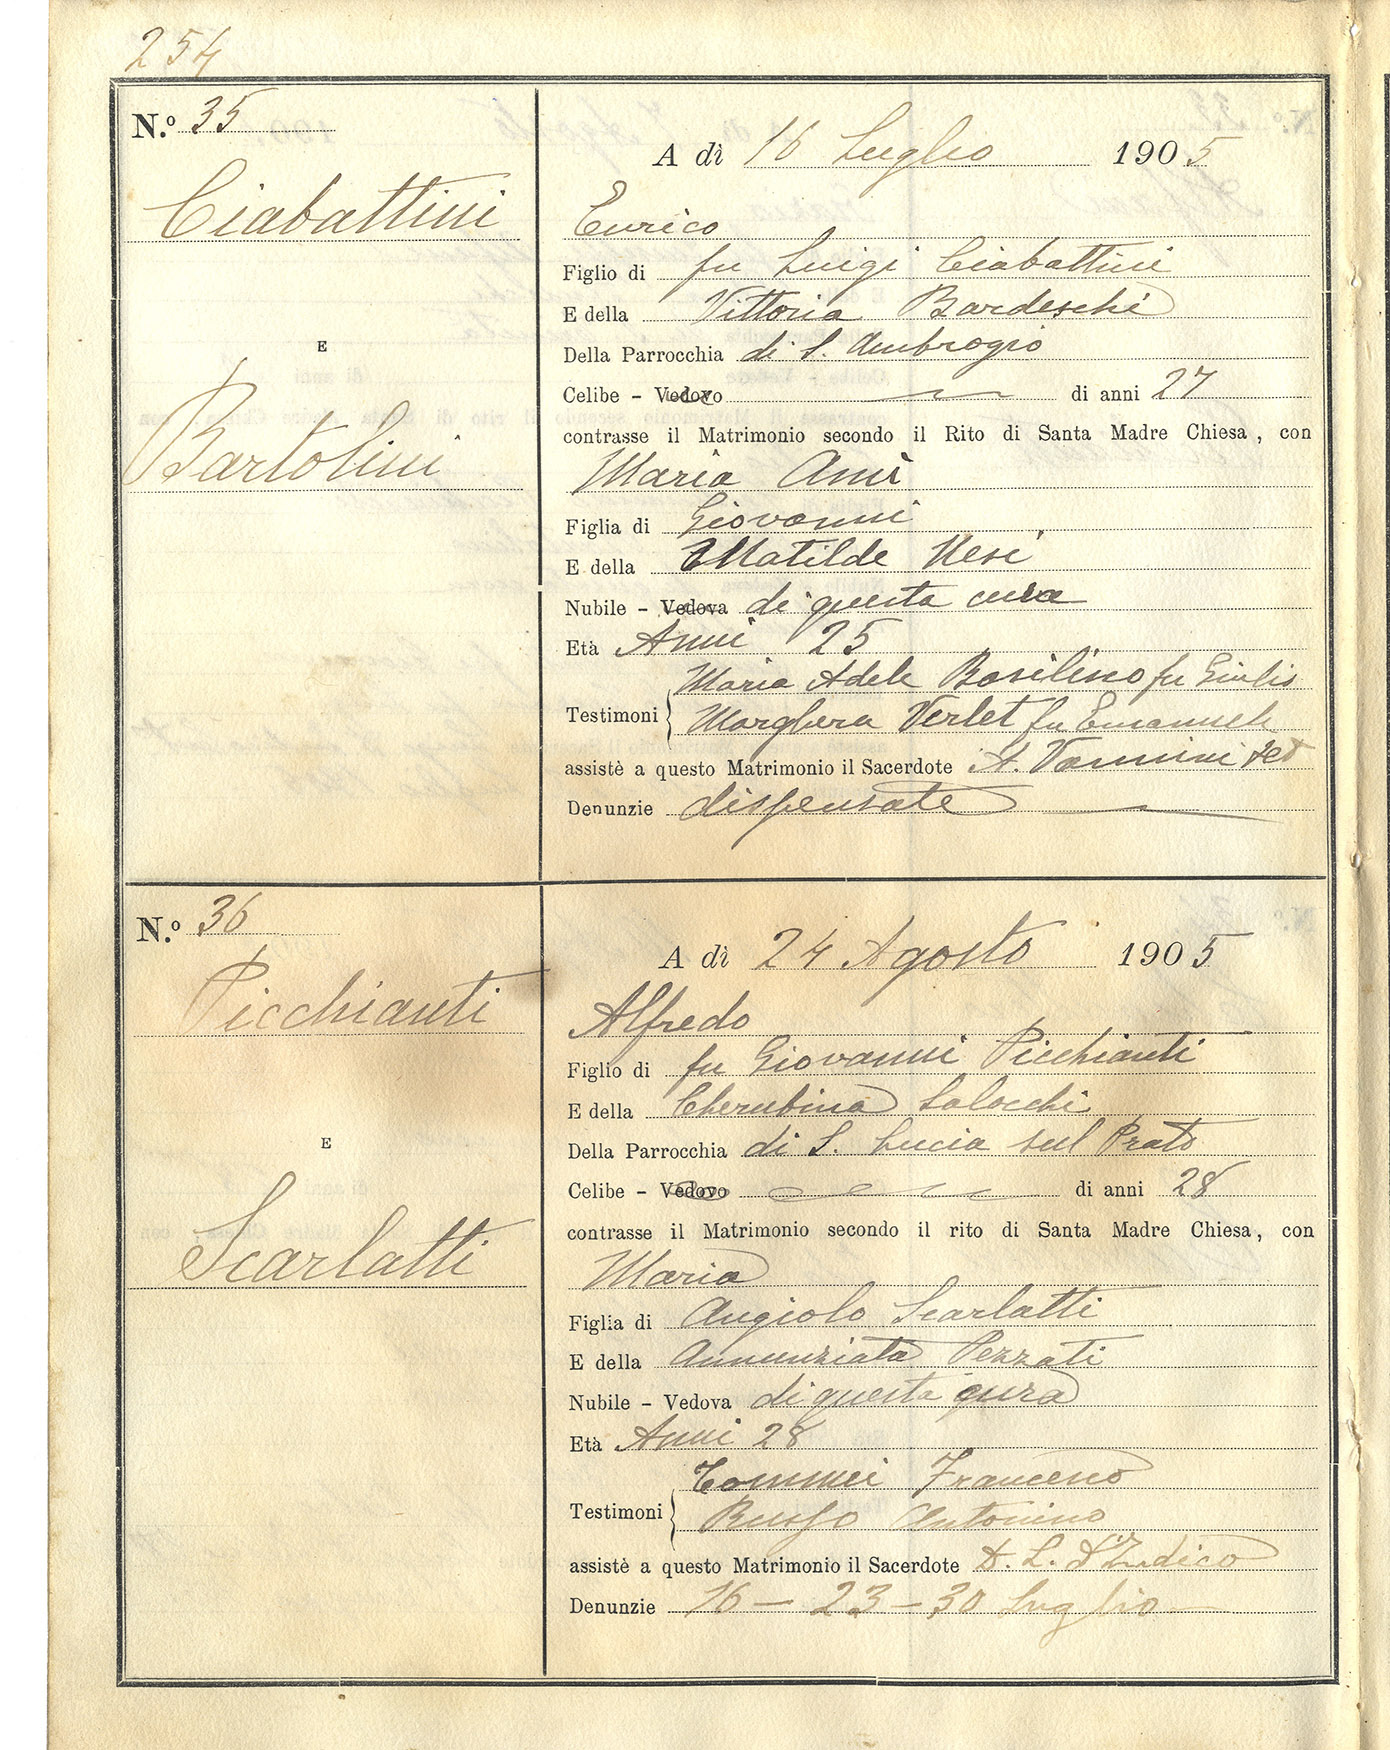 254
N.º 35
Ciabattini
E
Bartolini
A dì 16 Luglio 1905
Enrico
Figlio di fu Luigi Ciabattini
E della Vittoria Bardeschi
Della Parrocchia di S. Ambrogio
Celibe - Vedovo di anni 27
contrasse il Matrimonio secondo il Rito di Santa Madre Chiesa, con
Maria
Figlia di Giovanni
E della Matilde Nesi
Nubile - Vedova di questa cura
Età Anni 25
Maria Adele fu Giulio
Testimoni Verlet fu Emanuele
assistè a questo Matrimonio il Sacerdote A. Vannini
Denunzie dispensate
N.º 36
Picchianti
E
Scarlatti
A dì 24 Agosto 1905
Alfredo
Figlio di fu Giovanni Picchianti
E della Cherubina Salocchi
Della Parrocchia di S. Lucia sul Prato
Celibe - Vedovo di anni 28
contrasse il Matrimonio secondo il rito di Santa Madre Chiesa, con
Maria
Figlia di Angiolo Scarlatti
E della Annunziata Pezzati
Nubile - Vedova di questa cura
Età Anni 28
Tommei Francesco
Testimoni Russo Antonino
assistè a questo Matrimonio il Sacerdote D. L.
Denunzie 16 - 23 - 30 Luglio